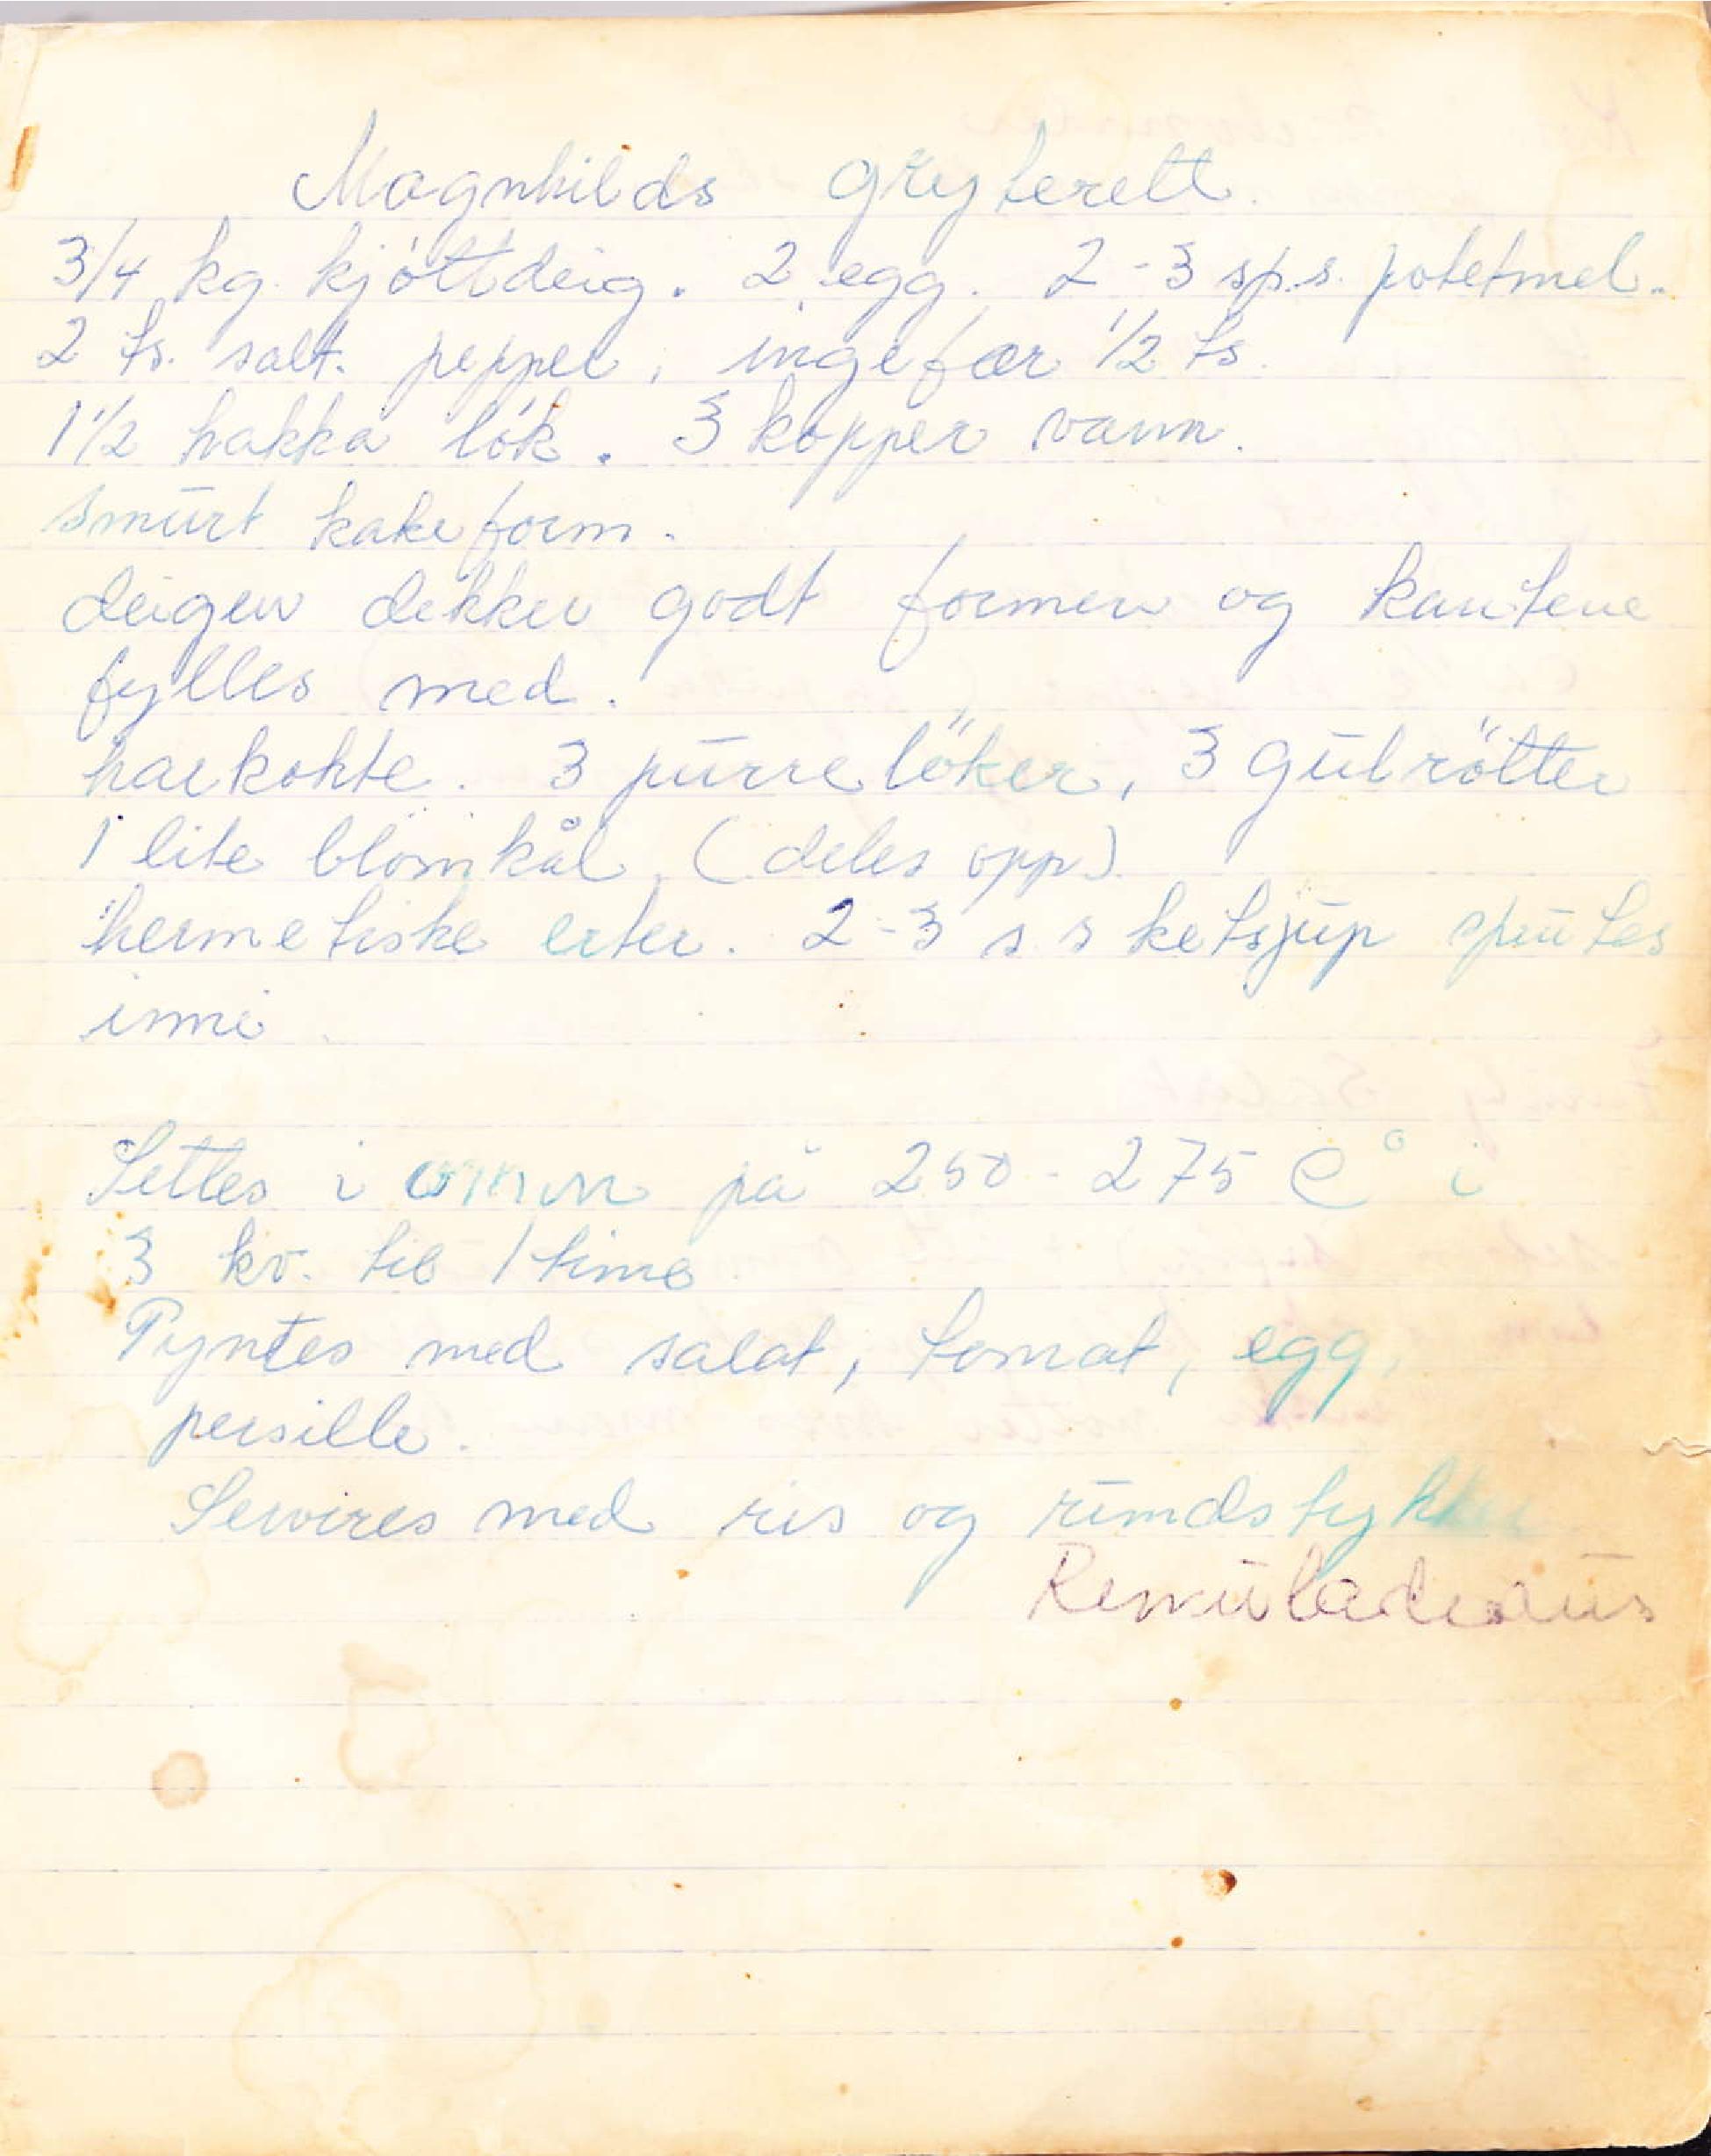 Magnhilds gryterett.
3/4 kg. kjöttdeig. 2 egg. 2-3 sp.s. potetmel.
2 ts. salt. pepper, ingefær 1/2 ts.
1 1/2 hakka lök. 3 kopper vann.
Smurt kakeform.
deigen dekker godt formen og kantene
fylles med.
harkokte. 3 purrelöker, 3 gulrötter
1 lite blomkål, (deles opp)
hermetiske erter. 2-3 s.s ketsjup sprutes
inni.
Settes i omnn på 250-275 C° i
3 kv. til 1 time
Pyntes med salat, tomat, egg,
persille.
Serveres med ris og rundstykker
Remuladesaus